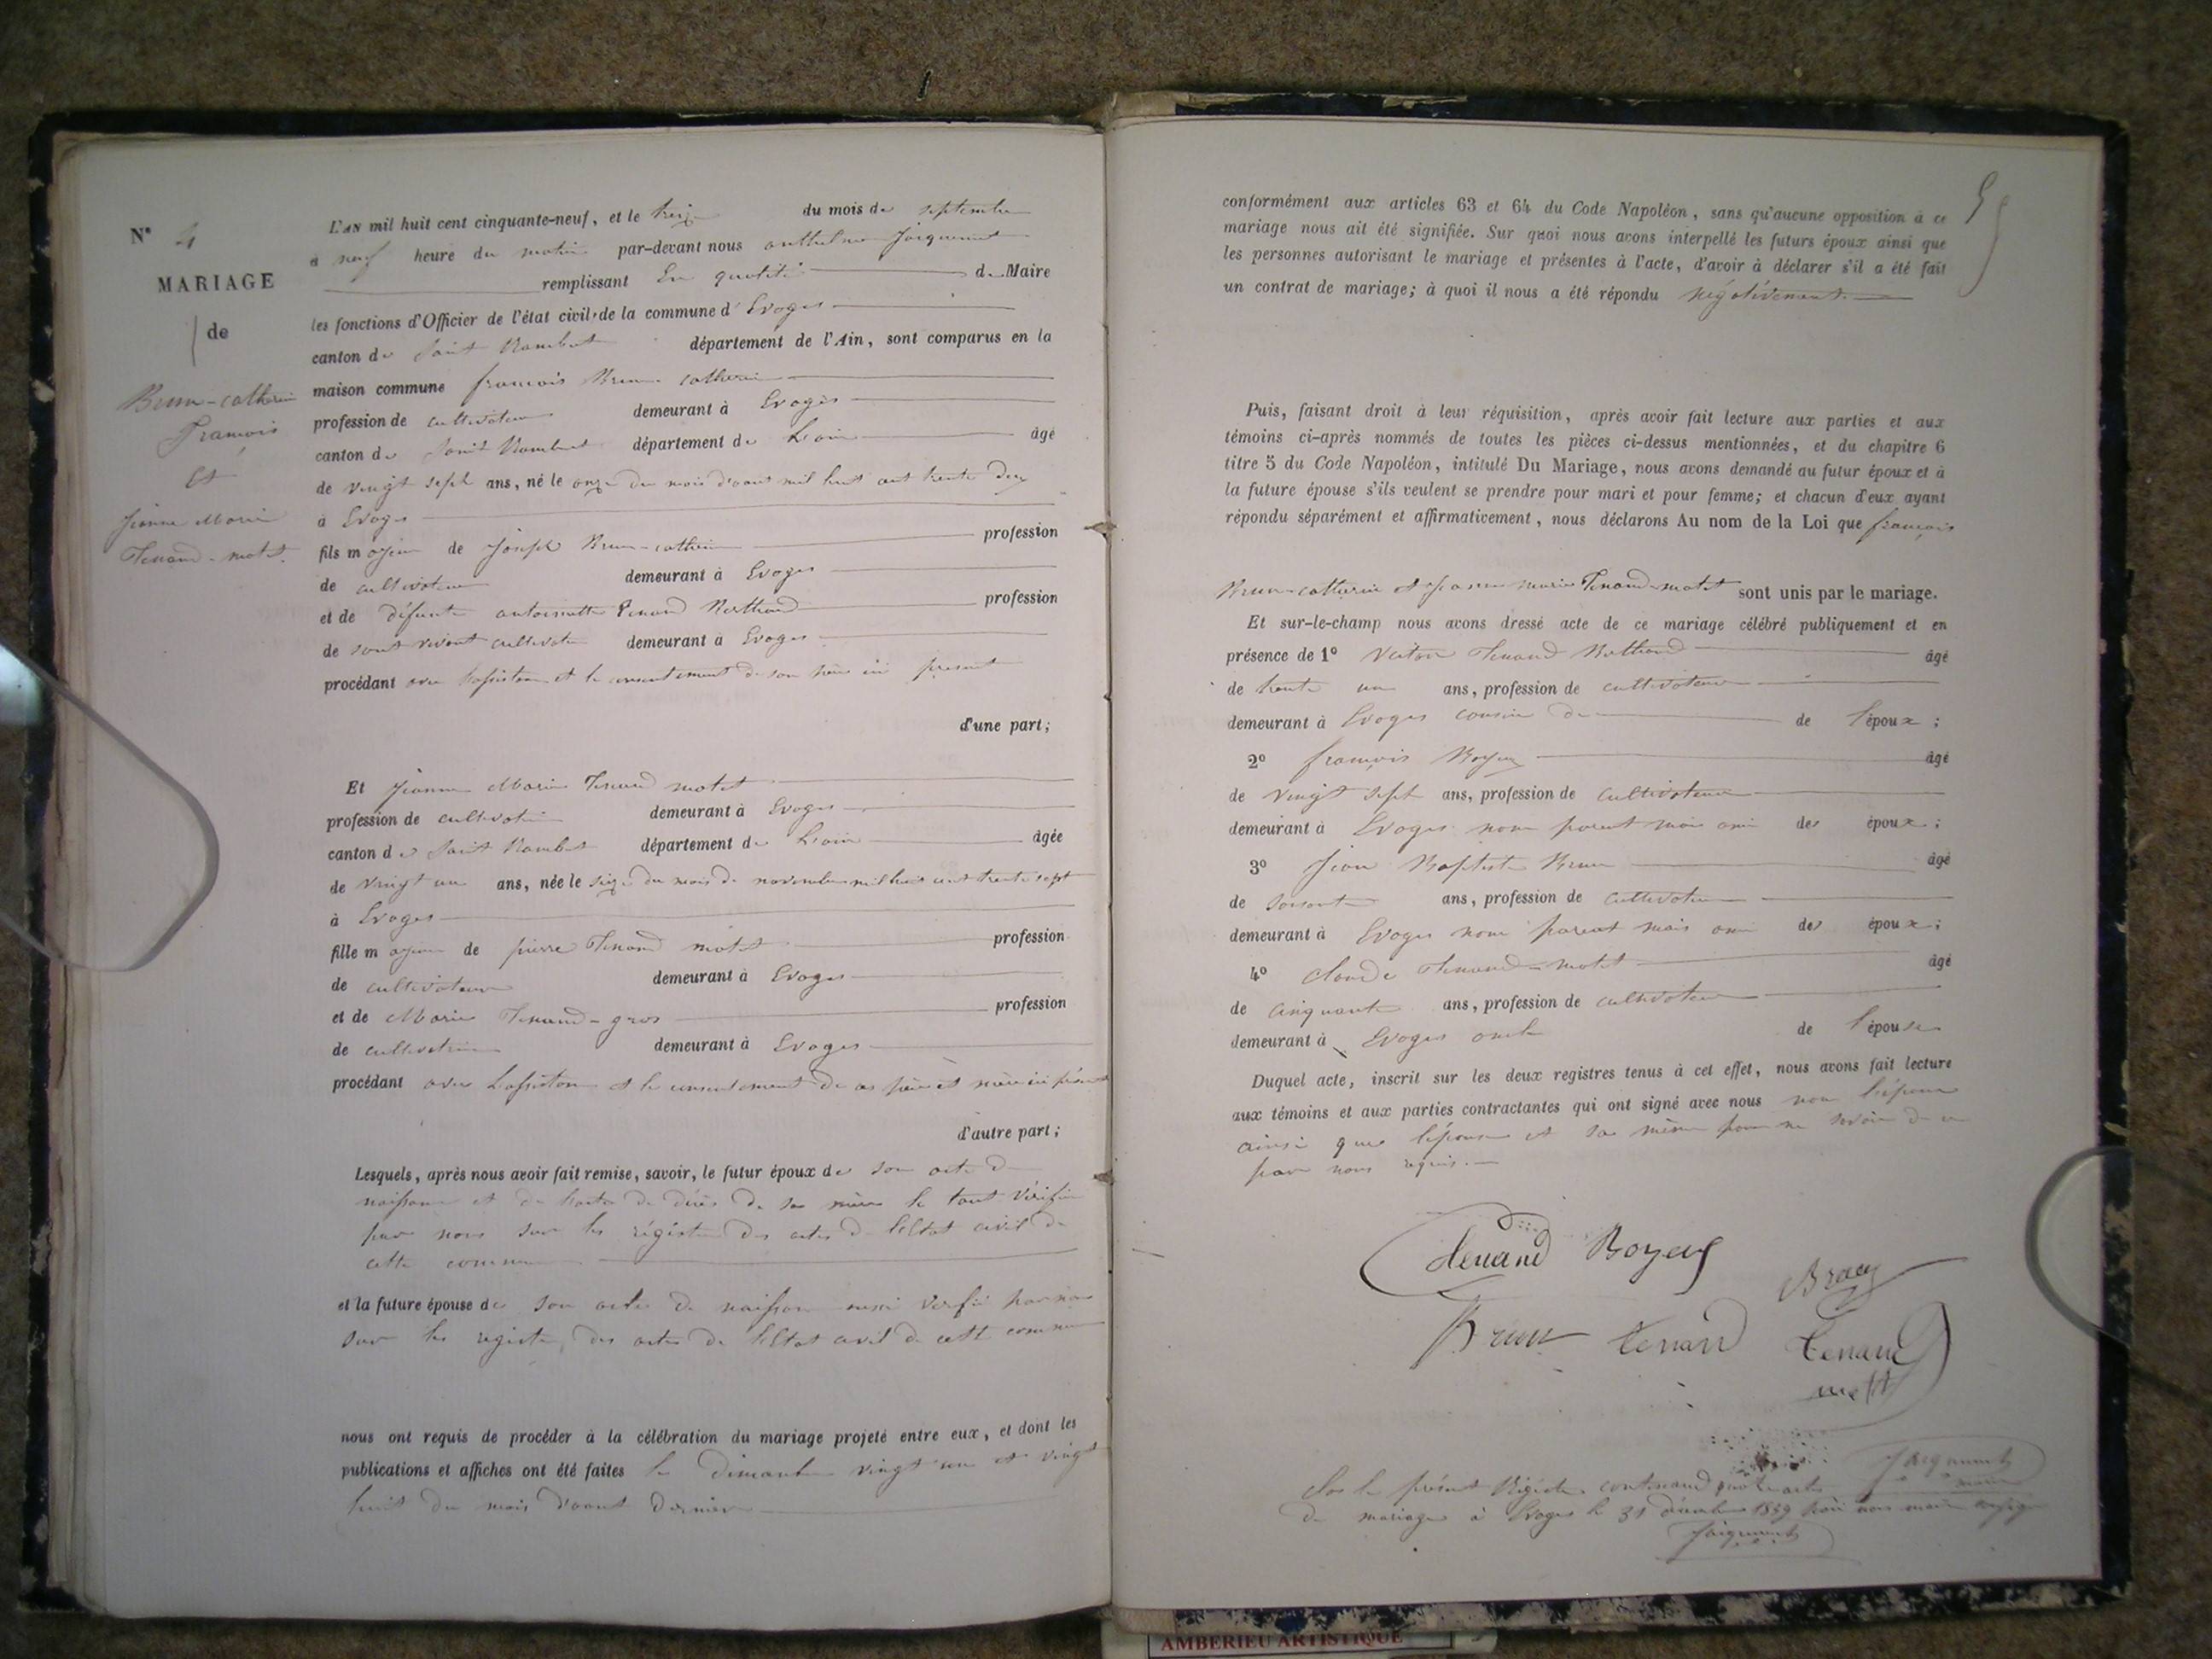 N° 4
MARIAGE
de
Brun-catherin
François
Et
Jeanne Marie
Tenand-motet.
L'AN mil huit cent cinquante-neuf, et le treize du mois de septembre
à neuf heure du matin par-devant nous anthelme Jacquemet
remplissant En qualité de Maire
les fonctions d'Officier de l'état civil de la commune d'Evoges
canton de Saint Rambert département de l'Ain, sont comparus en la
maison commune françois Brun-catherin
profession de cultivateur demeurant à Evoges
canton de Saint Rambert département de L'ain âgé
de vingt sept ans, né le onze du mois d'aout mil huit cent trente deux
à Evoges
fils majeur de Joseph Brun-catherin profession
de cultivateur demeurant à Evoges
et de défunte antoinette Tenand Berthaud profession
de son vivant cultivatrice demeurant à Evoges
procédant avec l'assistance et le consentement de son père ici présent
d'une part;
Et Jeanne Marie Tenand motet
profession de cultivatrice demeurant à Evoges
canton de Saint Rambert département de L'ain âgée
de vingt un ans, née le seize du mois de novembre mil huit cent trente sept
à Evoges
fille majeure de pierre Tenand motet profession
de cultivateur demeurant à Evoges
et de Marie Tenand-gros profession
de cultivatrice demeurant à Evoges
procédant avec L'assistance et le consentement de ses père et mère ici présents
d'autre part;
Lesquels, après nous avoir fait remise, savoir, le futur époux de son acte de
naissance et de l'acte de décès de sa mère le tout vérifié
par nous sur les régistres des actes de l'Etat civil de
cette commune
et la future épouse de son acte de naissance aussi vérifié par nous
sur les registres des actes de l'Etat civil de cette commune
nous ont requis de procéder à la célébration du mariage projeté entre eux, et dont les
publications et affiches ont été faites le dimanche vingt un et vingt
huit du mois d'aout dernier
conformément aux articles 63 et 64 du Code Napoléon, sans qu'aucune opposition à ce
mariage nous ait été signifiée. Sur quoi nous avons interpellé les futurs époux ainsi que
les personnes autorisant le mariage et présentes à l'acte, d'avoir à déclarer s'il a été fait
un contrat de mariage; à quoi il nous a été répondu négativement.
Puis, faisant droit à leur réquisition, après avoir fait lecture aux parties et aux
témoins ci-après nommés de toutes les pièces ci-dessus mentionnées, et du chapitre 6
titre 5 du Code Napoléon, intitulé Du Mariage, nous avons demandé au futur époux et à
la future épouse s'ils veulent se prendre pour mari et pour femme; et chacun d'eux ayant
répondu séparément et affirmativement, nous déclarons Au nom de la Loi que françois
Brun-catherin et Jeanne marie Tenand-motet sont unis par le mariage.
Et sur-le-champ nous avons dressé acte de ce mariage célébré publiquement et en
présence de 1° Victor Tenand Berthaud âgé
de trente un ans, profession de cultivateur
demeurant à Evoges cousin de de l'époux;
2° françois Boyer âgé
de vingt sept ans, profession de cultivateur
demeurant à Evoges non parent mais ami des époux;
3° Jean Baptiste Brun âgé
de soixante ans, profession de cultivateur
demeurant à Evoges non parent mais ami des époux;
4° claude Tenand-motet âgé
de cinquante ans, profession de cultivateur
demeurant à Evoges oncle de l'épouse
Duquel acte, inscrit sur les deux registres tenus à cet effet, nous avons fait lecture
aux témoins et aux parties contractantes qui ont signé avec nous non l'époux
ainsi que l'épouse et sa mère pour ne savoir de ce
par nous requis.
tenand Boyer
Brun
Brun tenand tenand
motet
Jacquemet
maire
Clos le présent Régistre contenant quatre actes
de mariage à Evoges le 31 décembre 1859 par nous maire soussigné
Jacquemet
AMBERIEU ARTISTIQUE